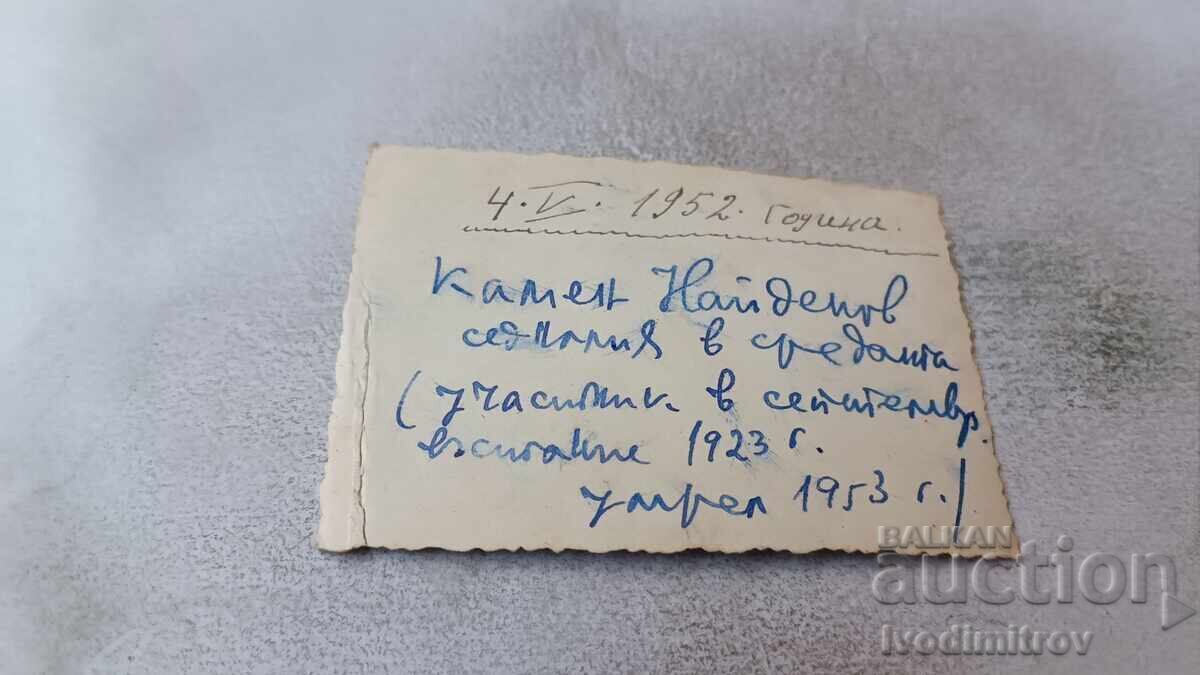 4. V. 1952. година.
Камен Найденов
седналия в средата
(участник в септемвр.
въстание 1923 г.
умрел 1953 г.)
BALKAN
auction
Ivodimitrov